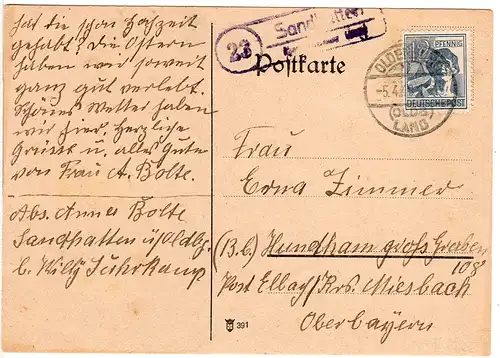 hat die schon Hochzeit
gehabt? Die Ostern
haben wir soweit
ganz gut verlebt.
Schönes Wetter haben
wir hier. Herzliche
Grüsse u. alles Gute
von Frau A. Bolte.
Abs. Annes Bolte
Sandhatten ü/Oldbg.
b. Willy Suhrkamp
23
Sandhatten
Postkarte
12 PFENNIG
DEUTSCHE POST
OLDENBURG
-5.4.
(OLDB)
LAND
Frau
Erna Zimmer
(13.b.) Hundham gross. Graben
108
Post Elbach/Krs. Miesbach
Oberbayern
391